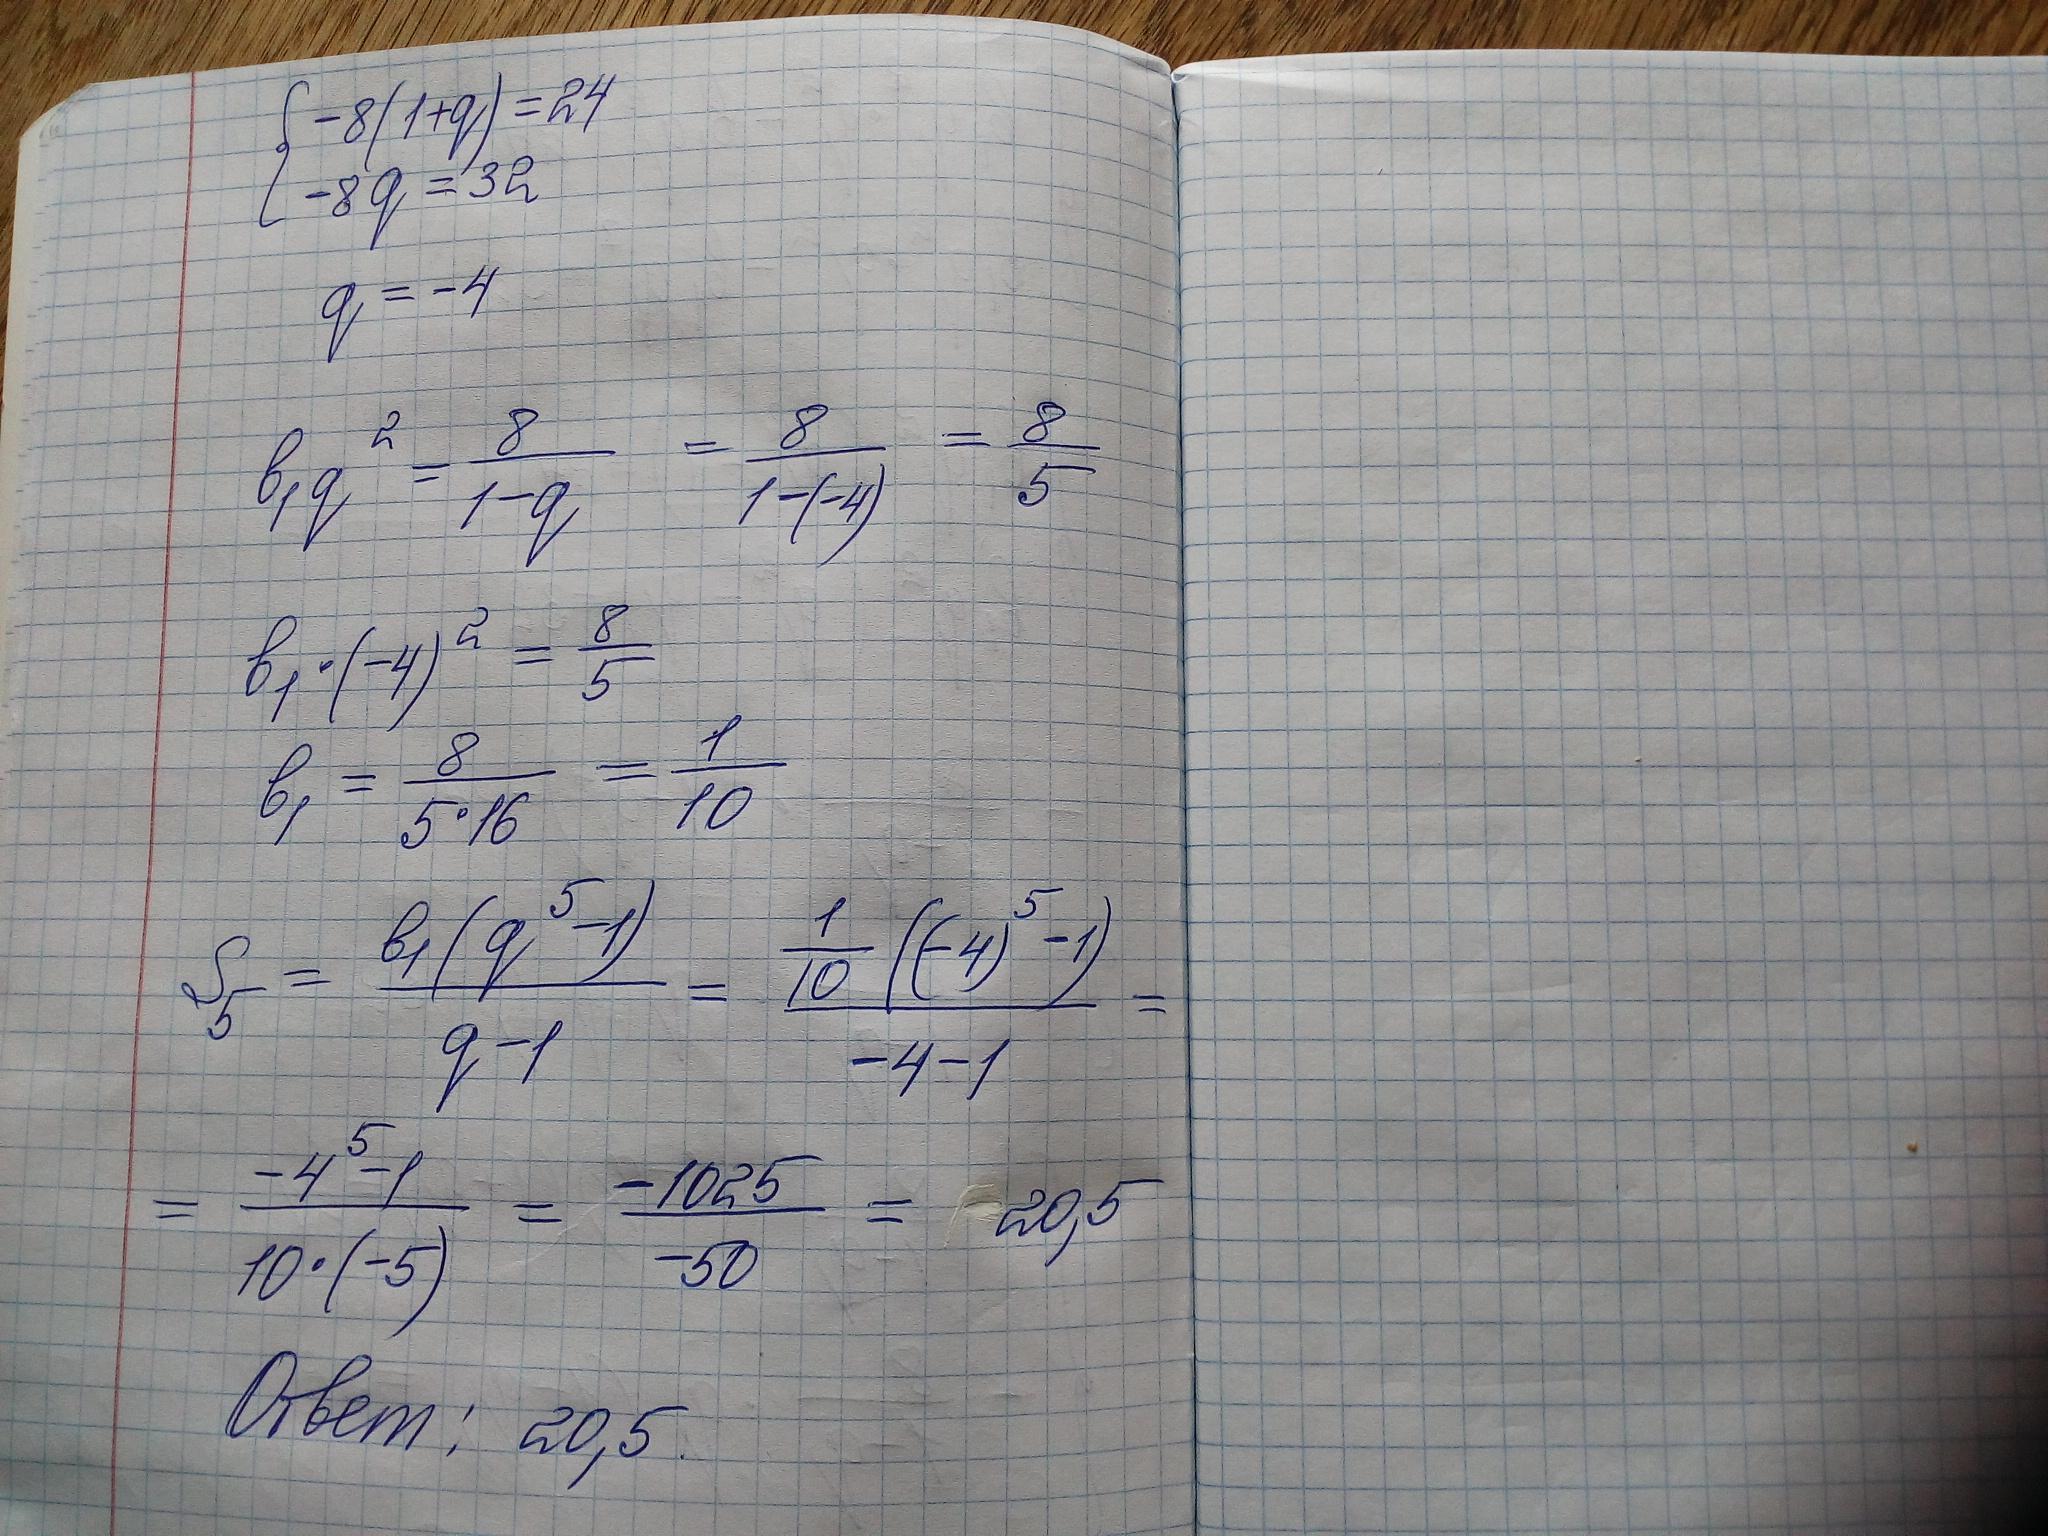 { -8(1+q) = 24
-8q = 32
q = -4
b₁q² = 8/(1-q) = 8/(1-(-4)) = 8/5
b₁·(-4)² = 8/5
b₁ = 8/(5·16) = 1/10
S₅ = b₁(q⁵-1)/(q-1) = 1/10((-4)⁵-1)/(-4-1) =
= (-4⁵-1)/(10·(-5)) = -1025/-50 = 20,5
Ответ: 20,5.